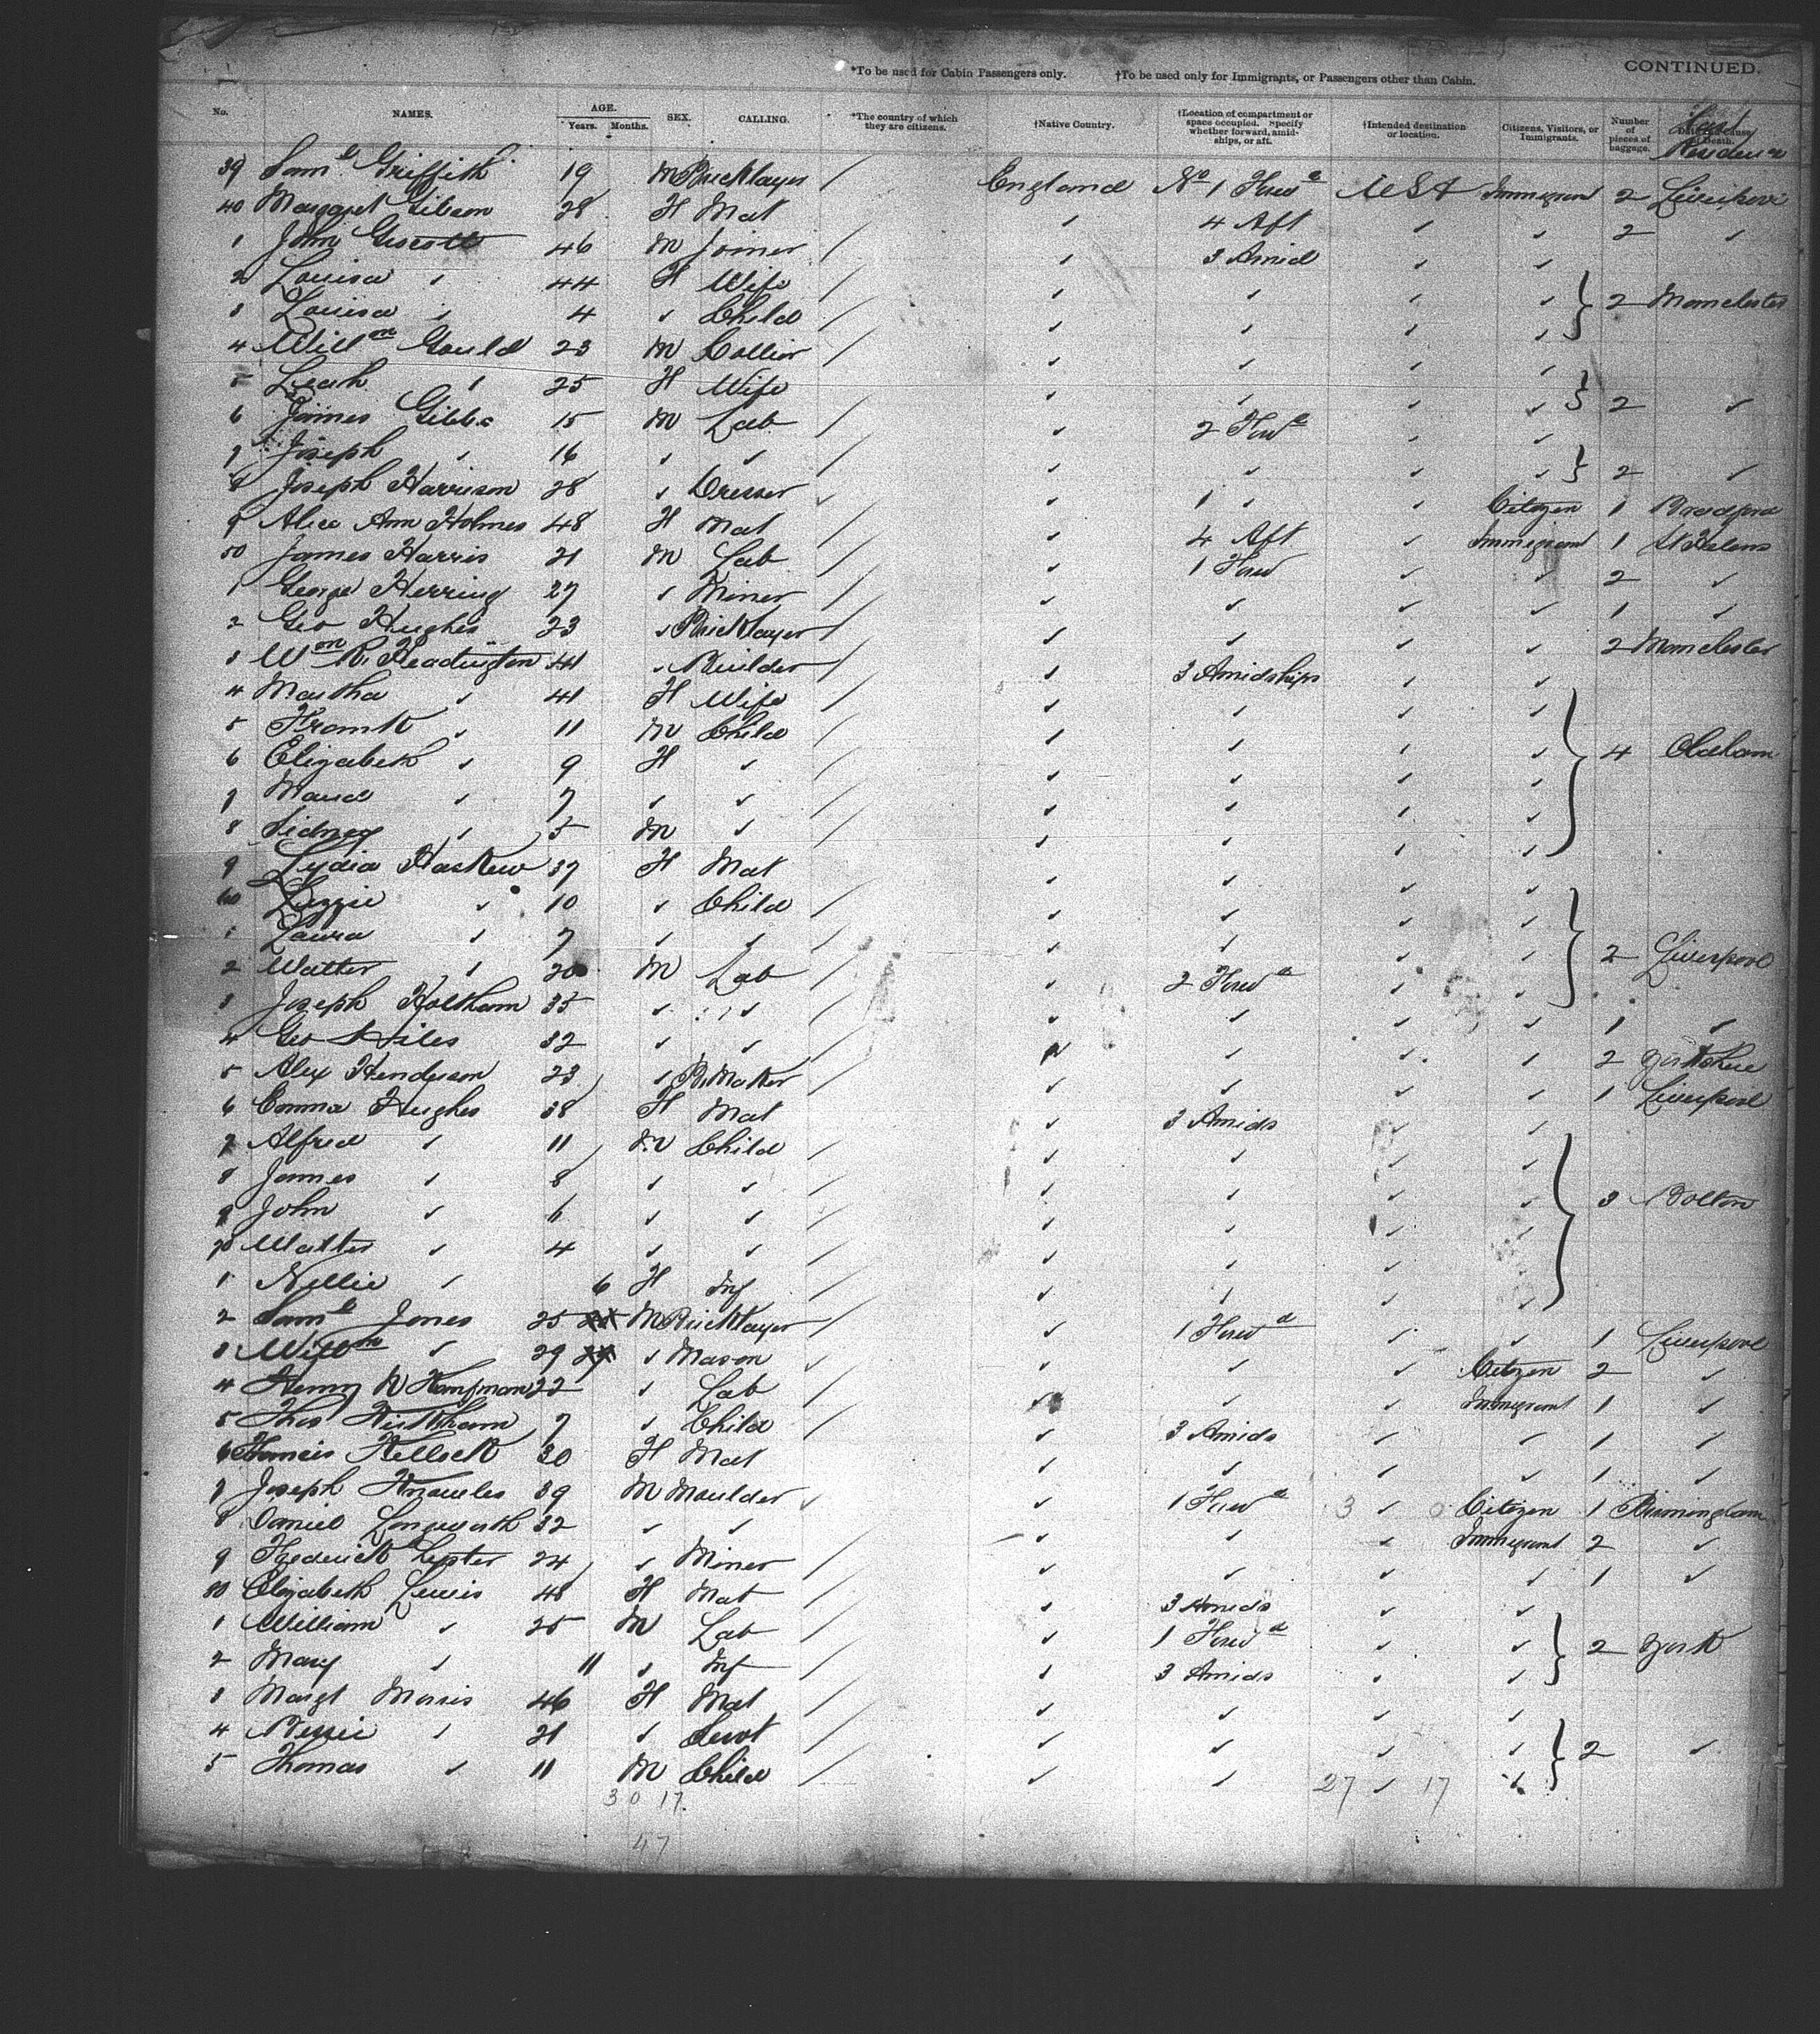 *To be used for Cabin Passengers only. †To be used only for Immigrants, or Passengers other than Cabin. CONTINUED.
No. NAMES. AGE. Years. Months. SEX. CALLING. *The country of which they are citizens. †Native Country. †Location of compartment or space occupied. Specify whether forward, amidships, or aft. †Intended destination or location. Citizens, Visitors, or Immigrants. Number of pieces of baggage. Last Residence
39 Saml Griffith 19 M Bricklayer / England No 1 Forwd USA Immigrant 2 Liverpool
40 Margaret Gibson 28 F Mat / ✓ 4 Aft ✓ ✓ 2 ✓
1 John 46 M Joiner / ✓ 3 Amid ✓ ✓
2 Louisa ✓ 44 F Wife / ✓ ✓ ✓ ✓ 2 Manchester
3 Louisa ✓ 4 ✓ Child / ✓ ✓ ✓ ✓
4 Willm Gould 23 M Collier / ✓ ✓ ✓ ✓
5 Leah ✓ 25 F Wife ✓ ✓ ✓ ✓ 2 ✓
6 James Gibbs 15 M Lab / ✓ 2 Forwd ✓ ✓
7 Joseph ✓ 16 ✓ ✓ / ✓ ✓ ✓ ✓ 2 ✓
8 Joseph Harrison 28 ✓ Dresser ✓ ✓ 1 ✓ ✓ Citizen 1 Bradford
9 Alice Ann Holmes 48 F Mat / ✓ 4 Aft ✓ Immigrant 1 St Helens
50 James Harris 21 M Lab / ✓ 1 Forwd ✓ ✓ 2 ✓
1 George Herring 27 ✓ Miner / ✓ ✓ ✓ ✓ 1 ✓
2 Geo Hughes 23 ✓ Bricklayer / ✓ ✓ ✓ ✓ 2 Manchester
3 Wm R. Headington 41 ✓ Builder / ✓ 3 Amidships ✓ ✓
4 Martha ✓ 41 F Wife / ✓ ✓ ✓ ✓
5 Frank ✓ 11 M Child / ✓ ✓ ✓ ✓ 4 Oldham
6 Elizabeth ✓ 9 F ✓ / ✓ ✓ ✓ ✓
7 Maud ✓ 7 ✓ ✓ / ✓ ✓ ✓ ✓
8 Sidney ✓ 5 M ✓ / ✓ ✓ ✓ ✓
9 Lydia Haskew 37 F Mat ✓ ✓ ✓ ✓
60 Lizzie ✓ 10 ✓ Child / ✓ ✓ ✓ ✓
1 Laura ✓ 7 ✓ ✓ / ✓ ✓ ✓ ✓ 2 Liverpool
2 Walter ✓ 20 M Lab / ✓ 2 Forwd ✓ ✓
3 Joseph Holtham 35 ✓ ✓ / ✓ ✓ ✓ ✓ 1 ✓
4 Geo Hiles 32 ✓ ✓ / ✓ ✓ ✓ ✓ 2 Yorkshire
5 Alex Henderson 23 ✓ B. Maker / ✓ ✓ ✓ ✓ 1 Liverpool
6 Emma Hughes 38 F Mat ✓ 3 Amids ✓ ✓
7 Alfred ✓ 11 M Child / ✓ ✓ ✓ ✓
8 James ✓ 8 ✓ ✓ / ✓ ✓ ✓ ✓ 3 Bolton
9 John ✓ 6 ✓ ✓ / ✓ ✓ ✓ ✓
70 Walter ✓ 4 ✓ ✓ / ✓ ✓ ✓ ✓
1 Nellie ✓ 6 F Inf / ✓ ✓ ✓ ✓
2 Saml Jones 25 M Bricklayer / ✓ 1 Forwd ✓ ✓ 1 Liverpool
3 Willm ✓ 29 ✓ Mason ✓ ✓ ✓ ✓ Citizen 2 ✓
4 Henry 22 ✓ Lab / ✓ ✓ ✓ Immigrant 1 ✓
5 Thos Kirkham 7 ✓ Child / ✓ 3 Amids ✓ ✓ 1 ✓
6 Francis 30 F Mat / ✓ ✓ ✓ ✓ 1 ✓
7 Joseph Knowles 39 M Moulder ✓ ✓ 1 Forwd 3 ✓ 0 Citizen 1 Birmingham
8 Daniel Longworth 32 ✓ ✓ ✓ ✓ ✓ Immigrant 2 ✓
9 Frederick Lester 24 ✓ Miner / ✓ ✓ ✓ ✓ 1 ✓
80 Elizabeth Lewis 48 F Mat / ✓ 3 Amids ✓ ✓
1 William ✓ 25 M Lab / ✓ 1 Forwd ✓ ✓ 2 York
2 Mary ✓ 11 ✓ Inf / ✓ 3 Amids ✓ ✓
3 Margt Morris 46 F Mat / ✓ ✓ ✓ ✓
4 Bessie ✓ 21 ✓ Servt / ✓ ✓ ✓ ✓ 2 ✓
5 Thomas ✓ 11 M Child / ✓ ✓ 27 ✓ 17 ✓
30 17
47